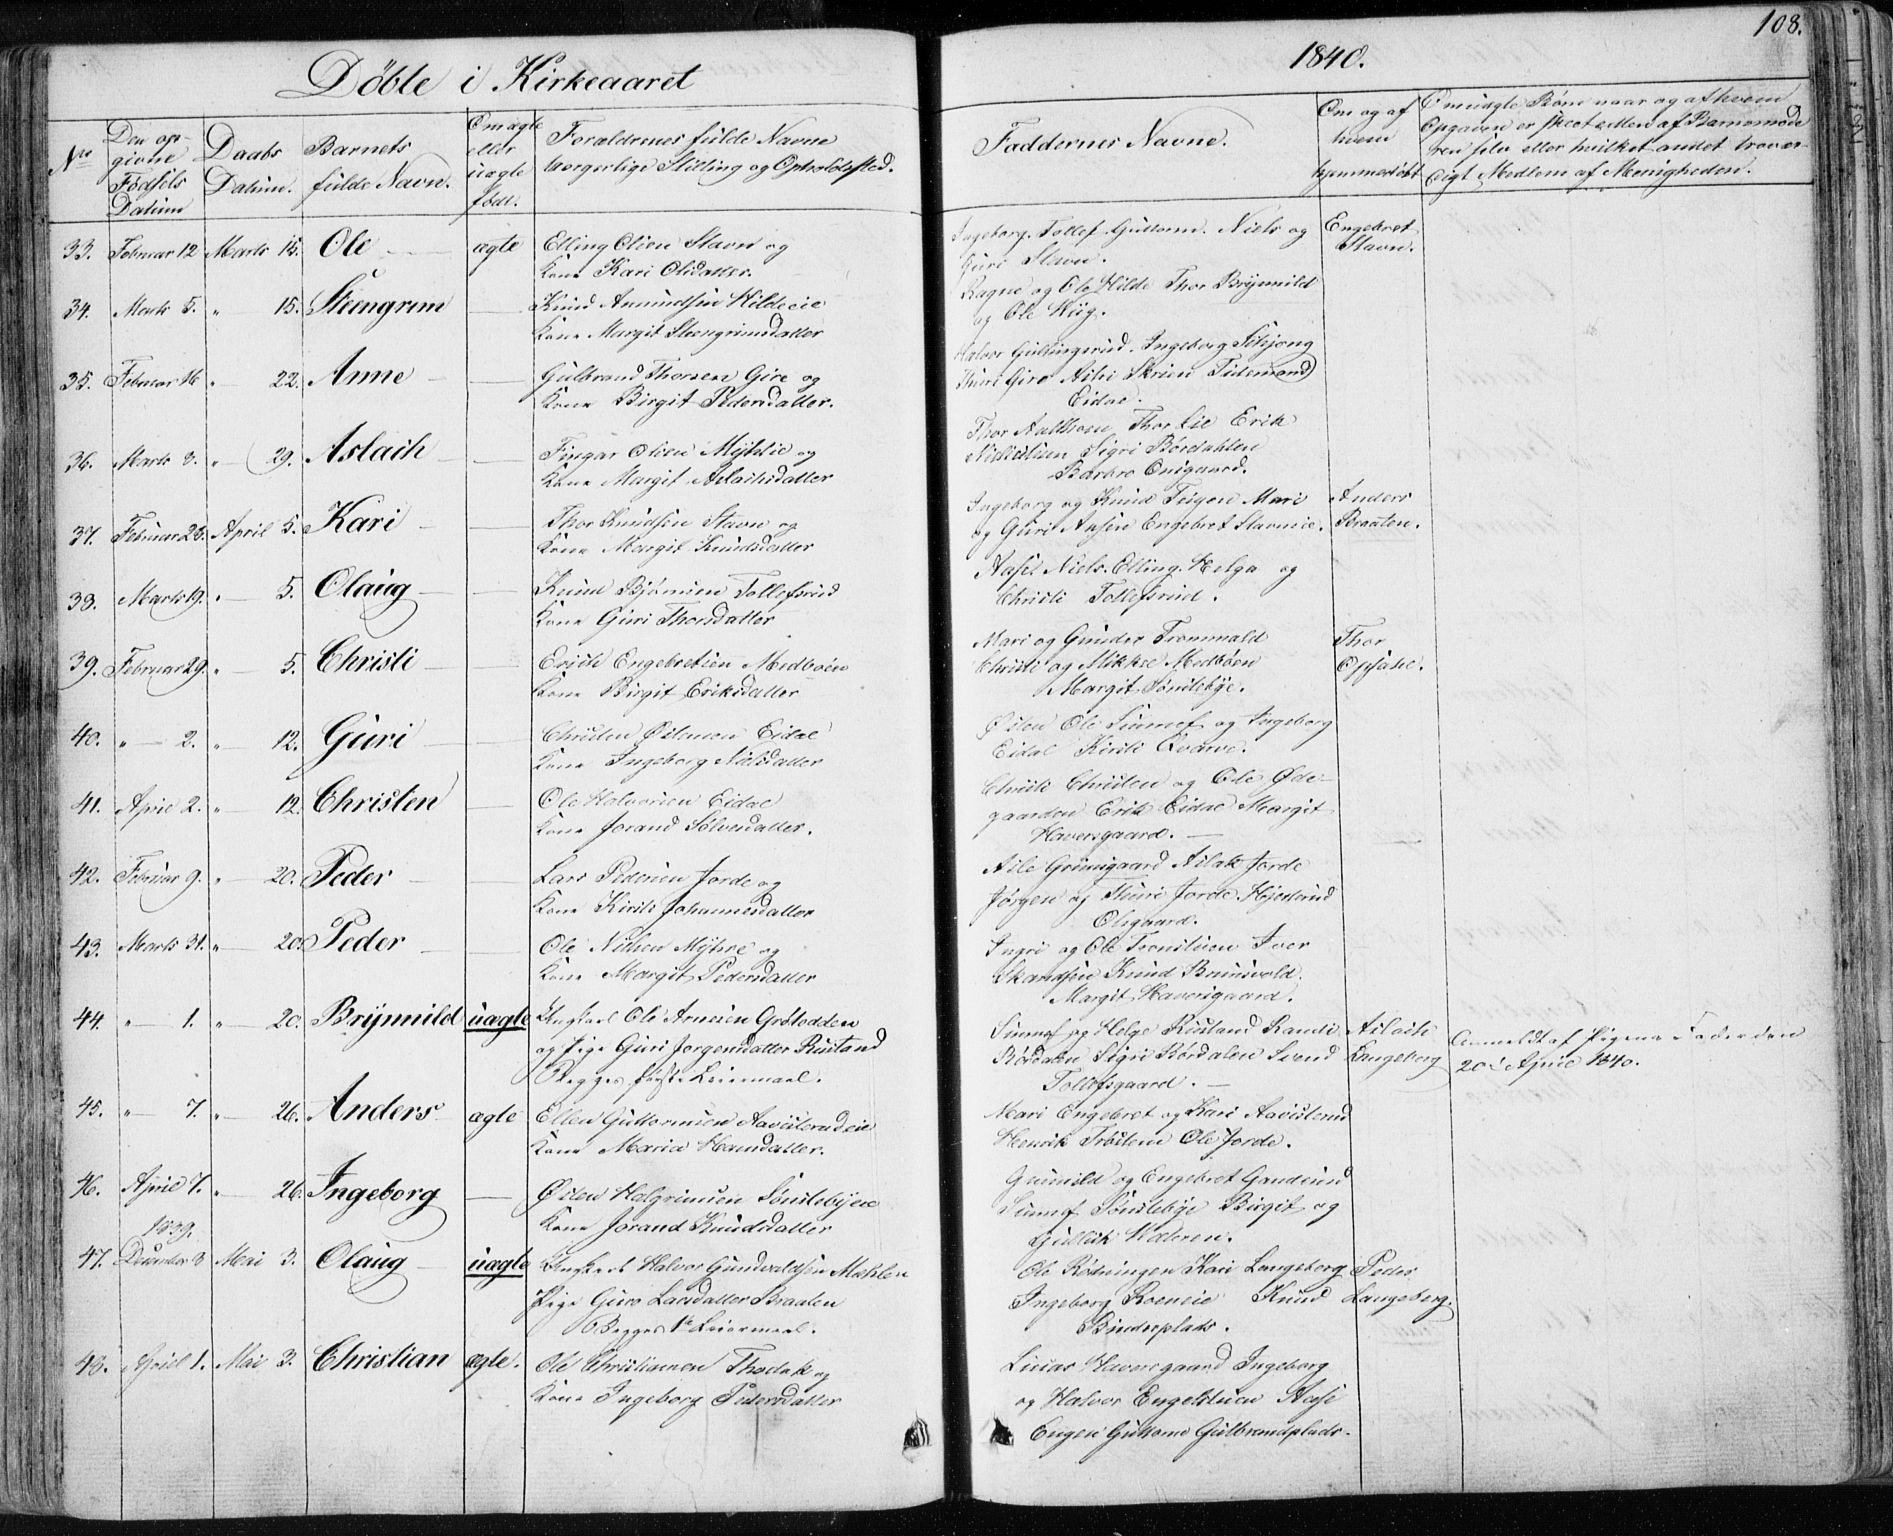 108.
Döbte i Kirkeaaret
1840.
No
Den op-
givne
Födsels
Datum
Daabs
Datum.
Barnets
fulde Navn.
ægte
eller
uægte
födt.
Forældrenes fulde Navne
borgerlige Stilling og Opholdssted.
Faddernes Navne.
Om og af
hvem
hjemmedöbt
Om uægte Börn naar og af hvem
Opgaven er skeet enten af Barnemode
ren selv eller hvilket andet trovær-
digt Medlem af Menigheden.
33. Februar 12 Marts 15. Ole ægte Elling Olsen Stavn og
Kone Kari Olsdatter.
Ingeborg Tollef Guttorm Niels og
Guri Stavn.
Engebret
Stavn.
34. Marts 5. " 15. Steengrim Knud Amundsen Hildeeie
Kone Margit Steengrimsdatter
Ragne og Ole Hilde Thor Brynnild
og Ole Wiig.
35. Februar 16 " 22. Anne Gulbrand Thorsen Gire og
Kone Birgit Pedersdatter.
Halvor Gullingsrud. Ingeborg
Thuri Gire Skrien Tidemand
Eidal.
36. Marts 8. " 29. Aslach Olsen Myhlie og
Kone Margit Aslachsdatter
Thor Thor Lie Erik
Sigri Børdahlen
Barbro
37. Februar 23. April 5. Kari Thor Knudsen Stavn og
Kone Margit Knudsdatter
Ingeborg og Knud Teigen Mari
og Guri Engebret Stavneie.
Anders
Braaten.
38. Marts 19. " 5. Olaug Knud Bjørnsen Tollefsrud
Kone Guri Thorsdatter
Niels. Elling. Helga og
Christi Tollefsrud.
39. Februar 29. " 5. Christi Erich Engebretsen Medboen
Kone Birgit Eriksdatter
Mari og Gunder Tromvald
Christi og Mikkel Medbøen
Margit Sønstebye.
Thor
Opsahl.
40. " 2. " 12. Guri Christen Østensen Eidal
Kone Ingeborg Nilsdatter
Østen Ole Sunnef og Ingeborg
Eidal Kirsti Qvarve.
41. April 2. " 12. Christen Ole Halvorsen Eidal
Kone Jorand Sølvesdatter.
Christi Christen og Ole Øde-
gaarden Erik Eidal Margit
Haversgaard.
42. Februar 9. " 20. Peder Lars Pedersen Jorde og
Kone Kirsti Johannesdatter
Grimsgaard Aslak Jorde
Jørgen og Thuri Jorde
Olsgaard.
43. Marts 31. " 20. Peder Ole Nilsen Myhre og
Kone Margit Pedersdatter
Ingri og Ole Iver
Knud
Margit Haversgaard.
44. " 1. " 20. Brynnild uægte Ungkarl Ole Arnesen Grøtodden
og Pige Guri Jørgensdatter Rustand
Begges første Leiermaal.
Sunnef og Helge Rustand Randi
Børdalen Sigri Børdalen Svend
Tollefsgaard.
Aslach
Langeberg
Anmeldt af Pigens Fader den
20d April 1840.
45. " 7. " 26. Anders ægte Ellen Guttormsen Aavestrudeie
Kone Maria Hansdatter.
Mari Engebret og Kari Aavestrud
Henrik Trøsten Ole Jorde.
46. April 7. " 26. Ingeborg Østen Halgrimsen Sønstebyeie
Kone Jorand Knudsdatter
Gunnild og Engebret Gandrud
Sunnef Sønstebye Birgit og
Gullik
1839.
47. December 8 Mai 3. Olaug uægte Ungkarl Halvor Gundvaldsen Mæhlen
Pige Guro Larsdatter Braaten
Begges 1ste Leiermaal.
Ole Rødningen Kari Langeberg
Ingeborg Roeneie Knud
Binderplads.
Peder
Langeberg.
48. April 1. Mai 3. Christian ægte. Ole Christiansen Thodak og
Kone Ingeborg Pedersdatter
Haversgaard Ingeborg
og Halvor
Engen Guttorm Gulbrandsplads.